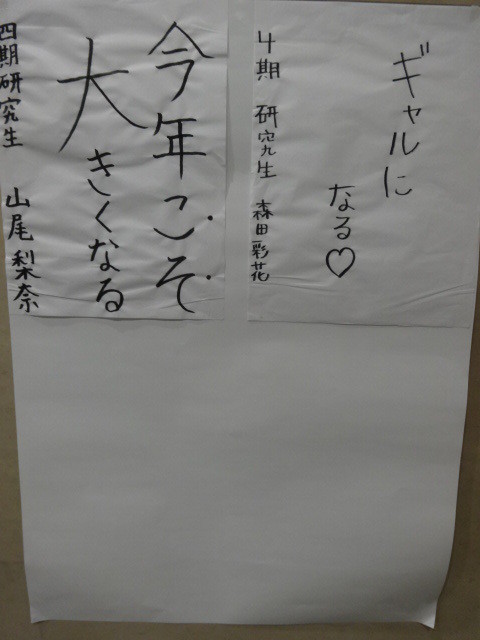 ギャルに
なる♡
4期 研究生 森田彩花
今年こそ
大きくなる
四期研究生 山尾梨奈